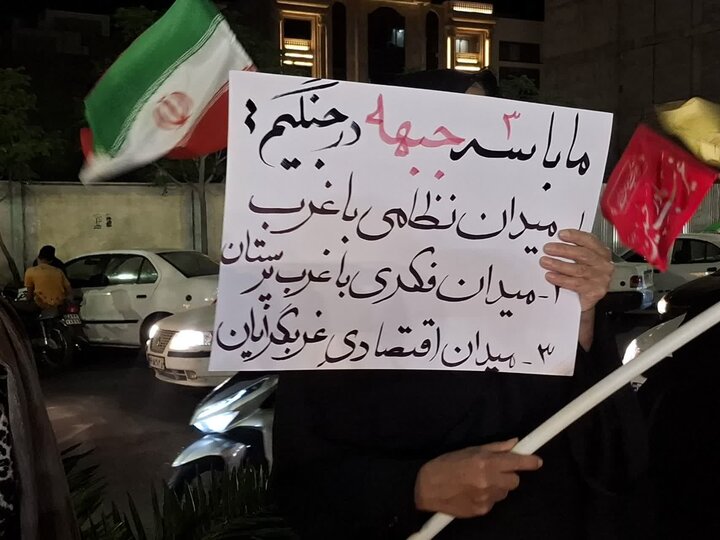 ما با سه ۳ جبهه در جنگیم :
۱_ میدان نظامی با غرب
۲_ میدان فکری با غرب پرستان
۳_ میدان اقتصادیِ غربگرایان